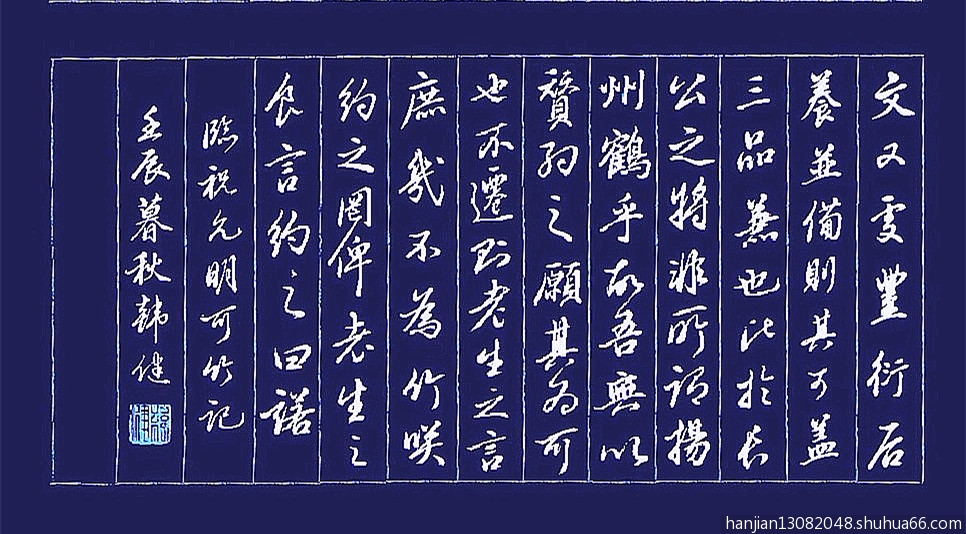 文又豐衍后
養並備則其可蓋
三品兼也比於長
公之將非所謂揚
州鶴乎故吾無以
贊之願其為可
也不遷老生之言
庶幾不為竹咲
約之俾老生之
食言約之曰諾
臨祝允明可竹記
壬辰暮秋韓健
hanjian13082048.shuhua66.com